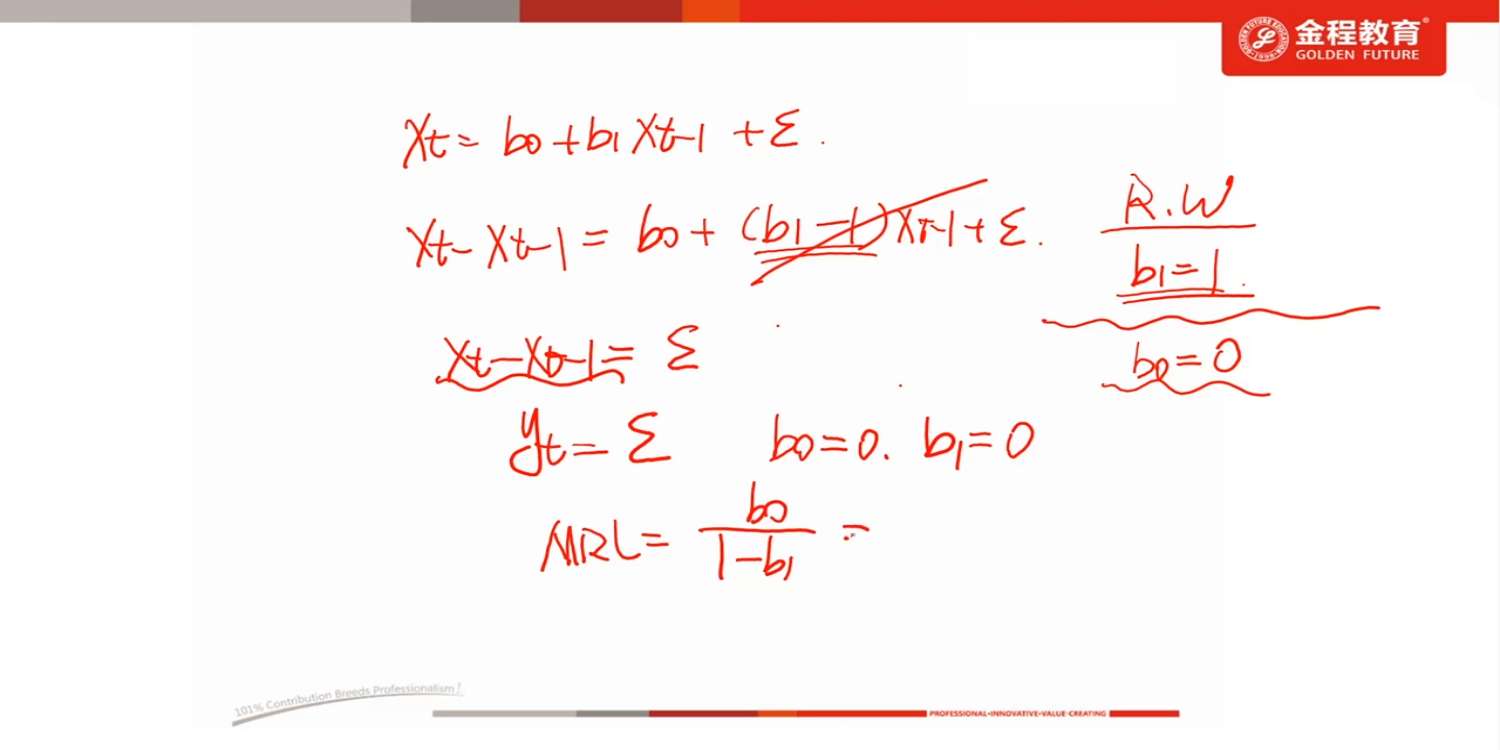 金程教育
GOLDEN FUTURE
Xt = b0 + b1 Xt-1 + Σ.
Xt - Xt-1 = b0 + (b1-1) Xt-1 + Σ.
R.W
b1=1.
Xt - Xt-1 = Σ
b0=0
yt = Σ b0=0. b1=0
MRL = b0 / 1-b1 =
101% Contribution Breeds Professionalism!
PROFESSIONAL·INNOVATIVE·VALUE-CREATING